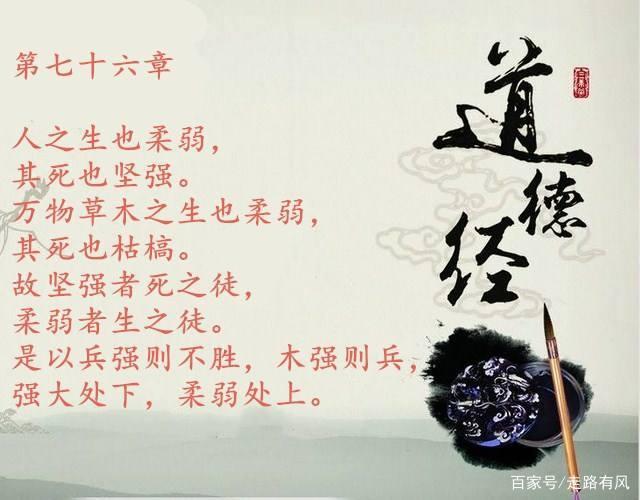 第七十六章
人之生也柔弱，
其死也坚强。
万物草木之生也柔弱，
其死也枯槁。
故坚强者死之徒，
柔弱者生之徒。
是以兵强则不胜，木强则兵，
强大处下，柔弱处上。
道德经
百家号/走路有风